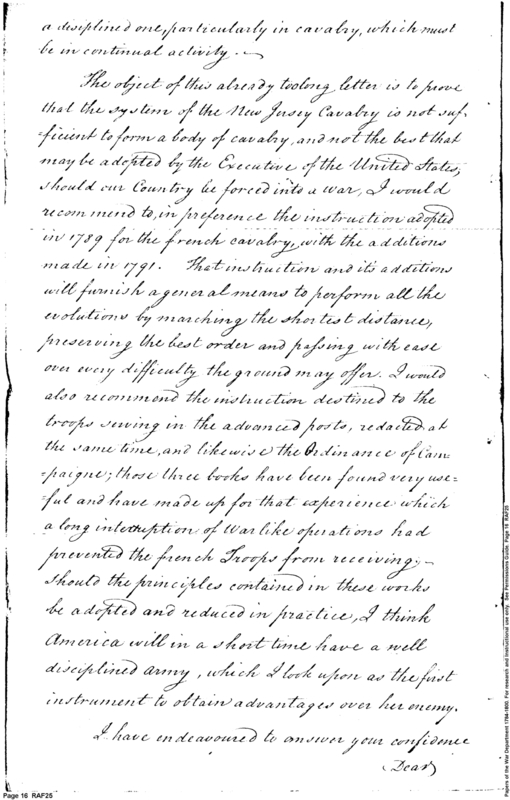 a disciplined one, particularly in cavalry, which must
be in continual activity. —
The object of this already too long letter is to prove
that the system of the New Jersey Cavalry is not suf-
=ficient to form a body of cavalry, and not the best that
may be adopted by the Executive of the United States,
should our Country be forced into a war, I would
recommend to, in preference the instruction adopted
in 1789 for the french cavalry, with the additions
made in 1791. That instruction and it's additions
will furnish a general means to perform all the
evolutions by marching the shortest distance,
preserving the best order and passing with ease
over every difficulty the ground may offer. I would
also recommend the instruction destined to the
troops serving in the advanced posts, redacted at
the same time, and likewise the Ordinance of Cam-
=paigne; those three books have been found very use=
=ful and have made up for that experience which
a long interruption of War like operations had
prevented the french Troops from receiving; —
should the principles contained in these works
be adopted and reduced in practice, I think
America will in a short time have a well
disciplined army, which I look upon as the first
instrument to obtain advantages over her enemy.
I have endeavoured to answer your confidence
Dear
Page 16 RAF25
Papers of the War Department 1784-1800. For research and instructional use only. See Permissions Guide. Page 16 RAF25